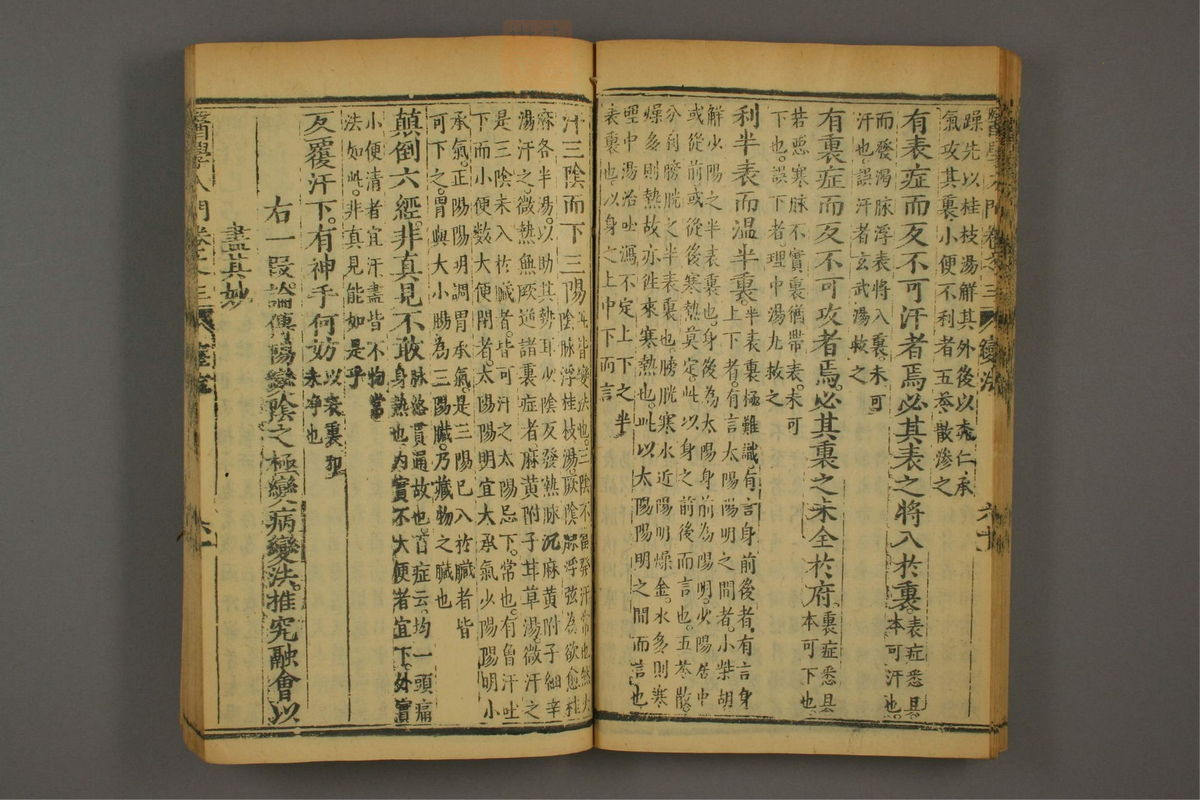 躁先以桂枝湯解其外後以桃仁承
氣攻其裏小便不利者五苓散滲之
有表症而反不可汗者焉必其表之將入於裏表症悉具
本可汗也
而發渴脉浮表將入裏未可
汗也誤汗者玄武湯救之
有裏症而反不可攻者焉必其裏之未全於府裏症悉具
本可下也
若惡寒脉不實裏猶帶表未可
下也誤下者理中湯丸救之
利半表而溫半裏半表裏極難識有言身前後者有言身
上下者有言太陽陽明之間者小柴胡
解少陽之半表裏也身後為太陽身前為陽明少陽居中
或從前或從後寒熱莫定此以身之前後而言也五苓散
分利膀胱之半表裏也膀胱寒水近陽明燥金水多則寒
燥多則熱故亦徃來寒熱也此以太陽陽明之間而言也
理中湯治吐瀉不定上下之半
表裏也以身之上中下而言
汗三陰而下三陽此皆變法也三陰不當發汗常也然太
陰脉浮桂枝湯厥陰脉浮弦為欲愈桂
麻各半湯以助其勢耳少陰反發熱脉沉麻黃附子細辛
湯汗之微熱無厥逆諸裏症者麻黃附子甘草湯微汗之
是三陰未入於臟者皆可汗之太陽忌下常也有魯汗吐
下而小便數大便閉者太陽陽明宜大承氣少陽陽明小
承氣正陽陽明調胃承氣是三陽已入於臟者皆
可下之胃與大小腸為三陽臟乃藏物之臟也
顛倒六經非真見不敢脉悠貫通故也百症云均一頭痛
身熱也內實不大便者宜下外實
小便清者宜汗盡皆不物當
法如此非真見能如是乎
反覆汗下有神手何妨以表裏邪
未净也
右一叚論傳陽變陰之極變病變法推究融會以
盡其妙